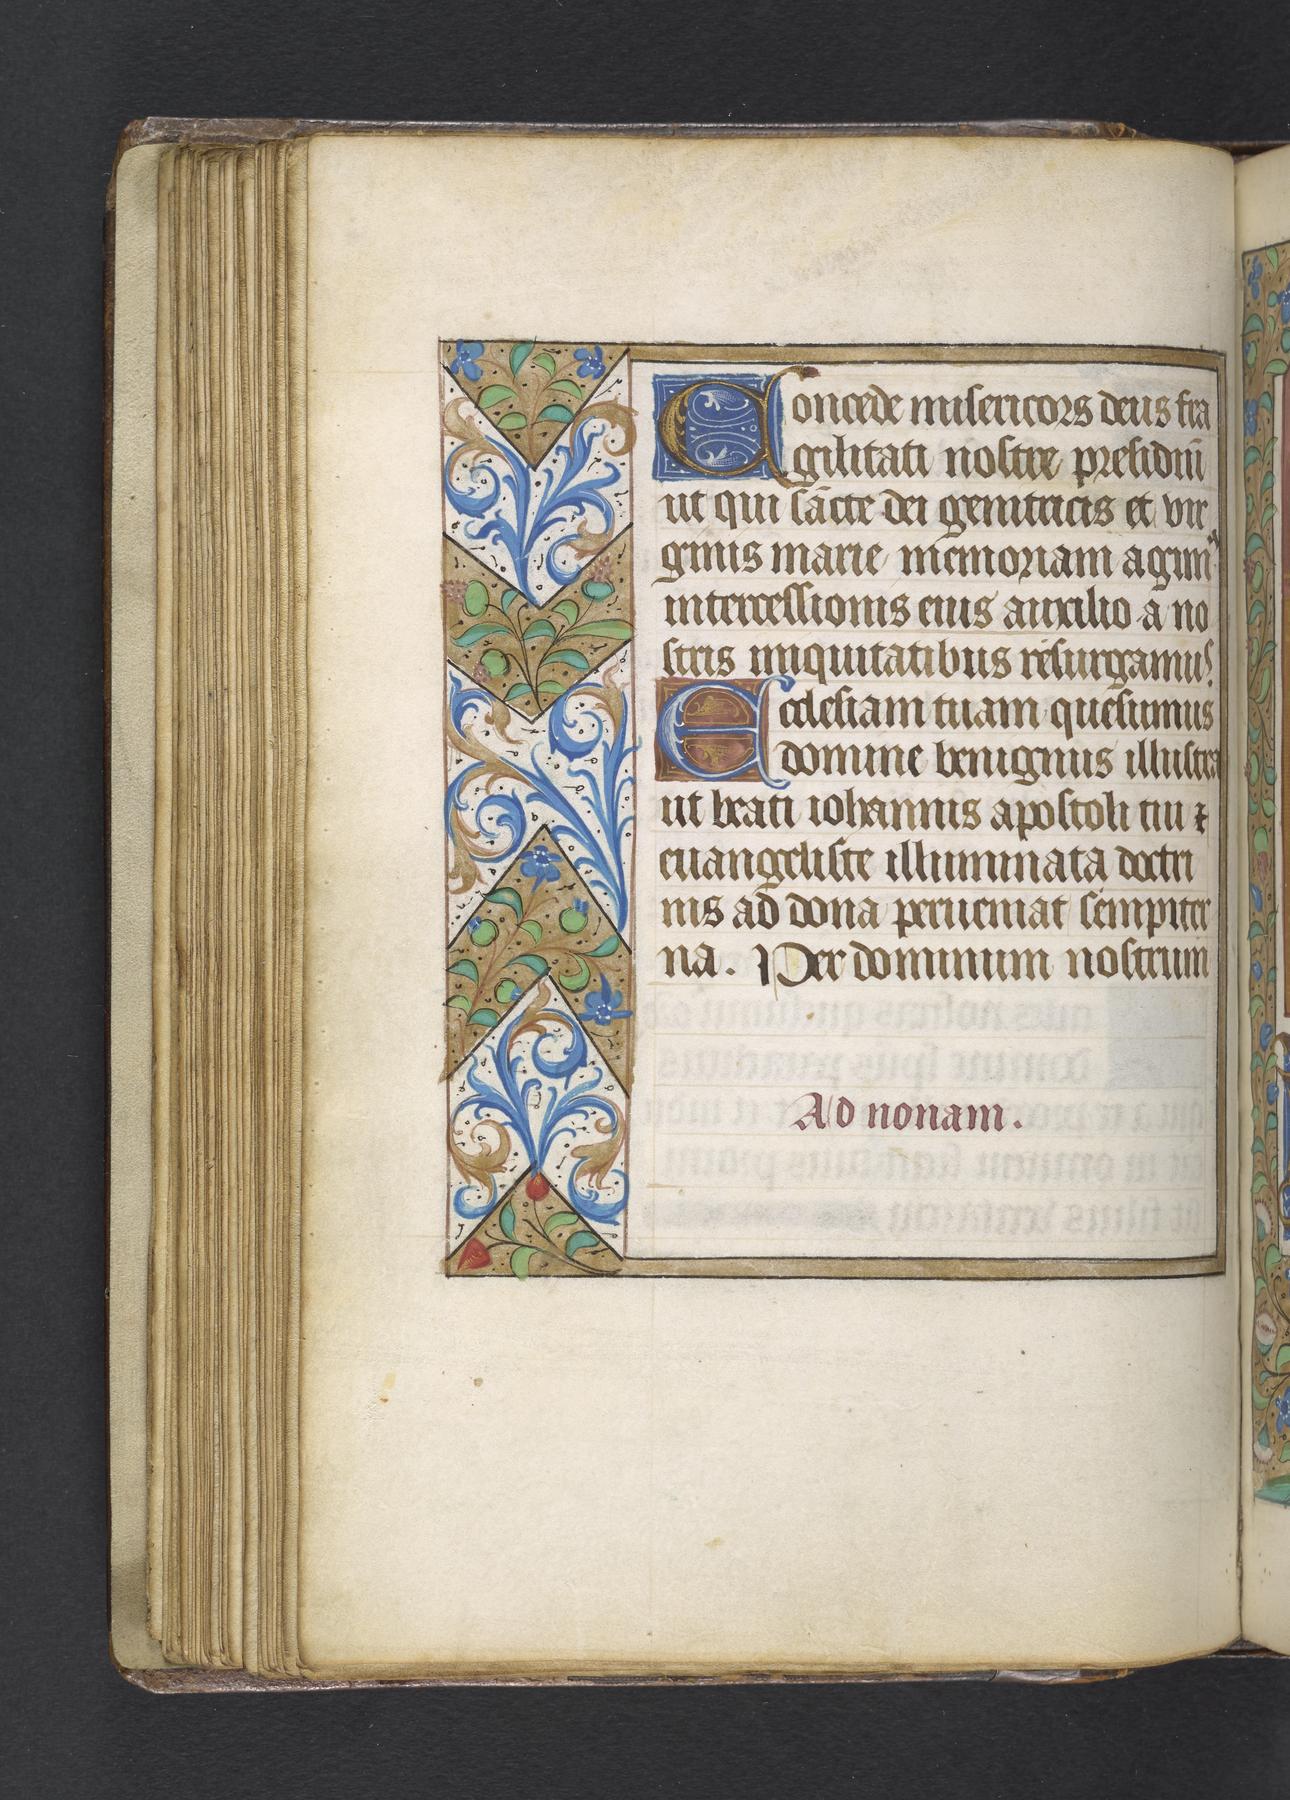 Concede misericors deus fra
gilitati nostre presidiū
ut qui sācte dei genitricis et vir
ginis marie memoriam agim
intercessionis eius auxilio a no
stris iniquitatibus resurgamus.
Ecclesiam tuam quesumus
domine benignus illustra
ut beati iohannis apostoli tui ⁊
euangeliste illuminata doctri
nis ad dona perueniat sempiter
na. Per dominum nostrum
Ad nonam.